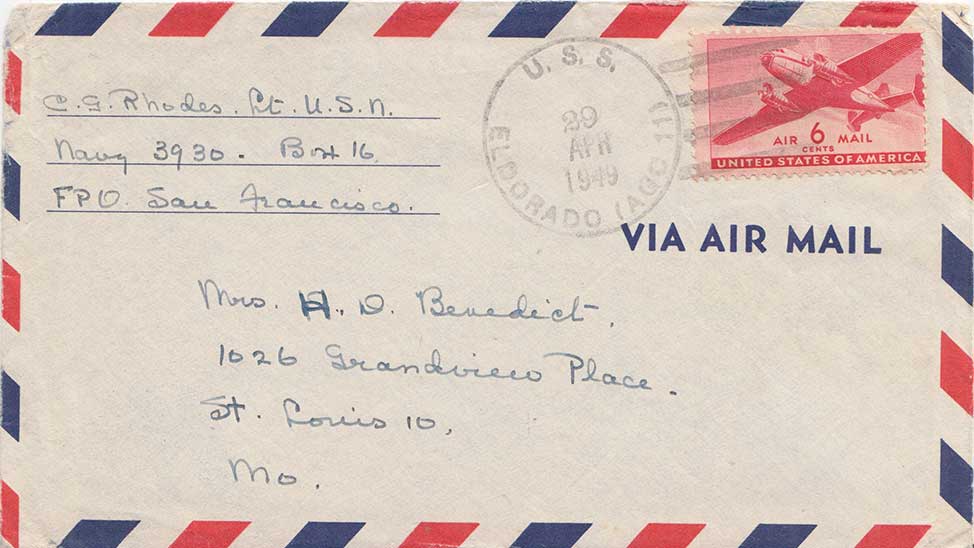 C. G. Rhodes. Lt. U.S.N.
Navy 3930. Box 16
FPO. San Francisco.
U. S. S.
29
APR
1949
ELDORADO (AGC 11)
AIR 6 MAIL
CENTS
UNITED STATES OF AMERICA
VIA AIR MAIL
Mrs. H. D. Benedict.
1026 Grandview Place.
St. Louis 10,
Mo.